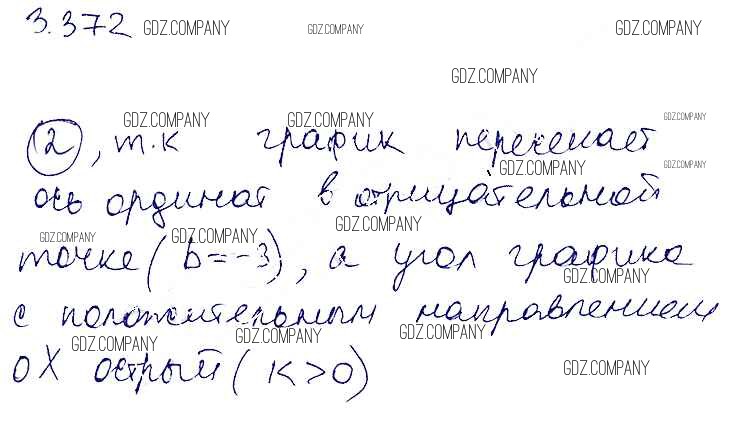 3.372 GDZ.COMPANY GDZ.COMPANY GDZ.COMPANY
GDZ.COMPANY
GDZ.COMPANY GDZ.COMPANY GDZ.COMPANY
2, т.к график пересекает
GDZ.COMPANY GDZ.COMPANY
ось ординат в отрицательной
GDZ.COMPANY GDZ.COMPANY GDZ.COMPANY
точке (b=-3), а угол графика
GDZ.COMPANY
с положительным направлением
GDZ.COMPANY GDZ.COMPANY GDZ.COMPANY
OX острый (K>0)
GDZ.COMPANY